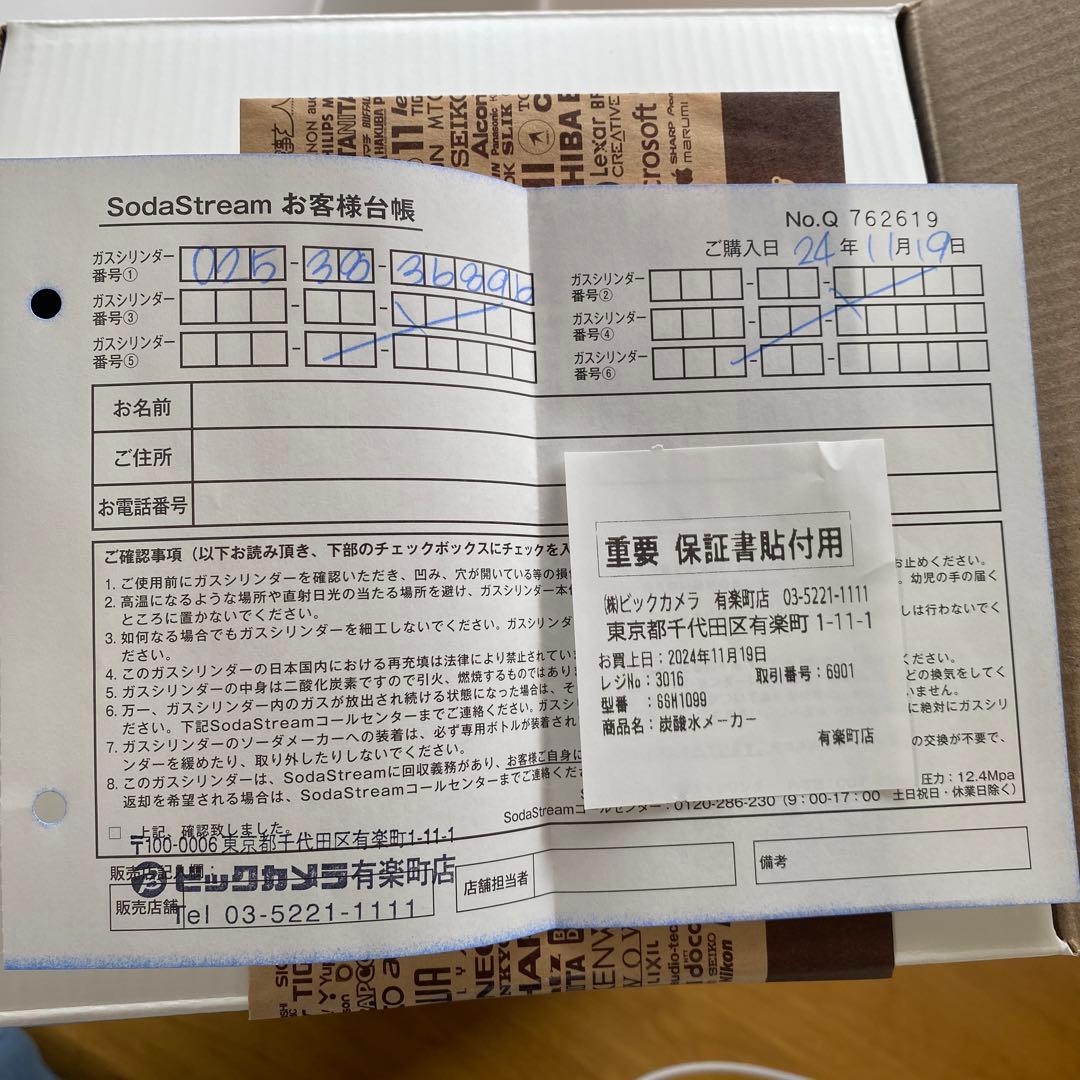 SodaStream お客様台帳
No.Q 762619
ご購入日 24年11月19日
ガスシリンダー
番号①
ガスシリンダー
番号②
ガスシリンダー
番号③
ガスシリンダー
番号④
ガスシリンダー
番号⑤
ガスシリンダー
番号⑥
お名前
ご住所
お電話番号
ご確認事項（以下お読み頂き、下部のチェックボックスにチェックを入
1. ご使用前にガスシリンダーを確認いただき、凹み、穴が開いている等の損
お止めください。
2. 高温になるような場所や直射日光の当たる場所を避け、ガスシリンダー本
幼児の手の届く
ところに置かないでください。
3. 如何なる場合でもガスシリンダーを細工しないでください。ガスシリンダ
しは行わないでく
ださい。
4. このガスシリンダーの日本国内における再充填は法律により禁止されてい
ください。
5. ガスシリンダーの中身は二酸化炭素ですので引火、燃焼するものではあり
どの換気をしてく
6. 万一、ガスシリンダー内のガスが放出され続ける状態になった場合は、そ
いません。
ださい。下記SodaStreamコールセンターまでご連絡ください。ガスシ
に絶対にガスシリ
7. ガスシリンダーのソーダメーカーへの装着は、必ず専用ボトルが装着され
ンダーを緩めたり、取り外したりしないでください。
の交換が不要で、
8. このガスシリンダーは、SodaStreamに回収義務があり、お客様ご自身に
返却を希望される場合は、SodaStreamコールセンターまでご連絡くだ
圧力：12.4Mpa
SodaStreamコールセンター：0120-286-230（9：00-17：00 土日祝日・休業日除く）
重要 保証書貼付用
㈱ビックカメラ 有楽町店 03-5221-1111
東京都千代田区有楽町 1-11-1
お買上日：2024年11月19日
レジNo：3016 取引番号：6901
型番 ：SSM1099
商品名：炭酸水メーカー
有楽町店
□ 上記、確認致しました。
〒100-0006 東京都千代田区有楽町1-11-1
販売店記入欄：
ビックカメラ有楽町店
販売店舗
Tel 03-5221-1111
店舗担当者
備考
SEIKO
Alcon
Panasonic
Lexar
CREATIVE
crosoft
SHARP
marumi
LIXIL
SEIKO
Nikon